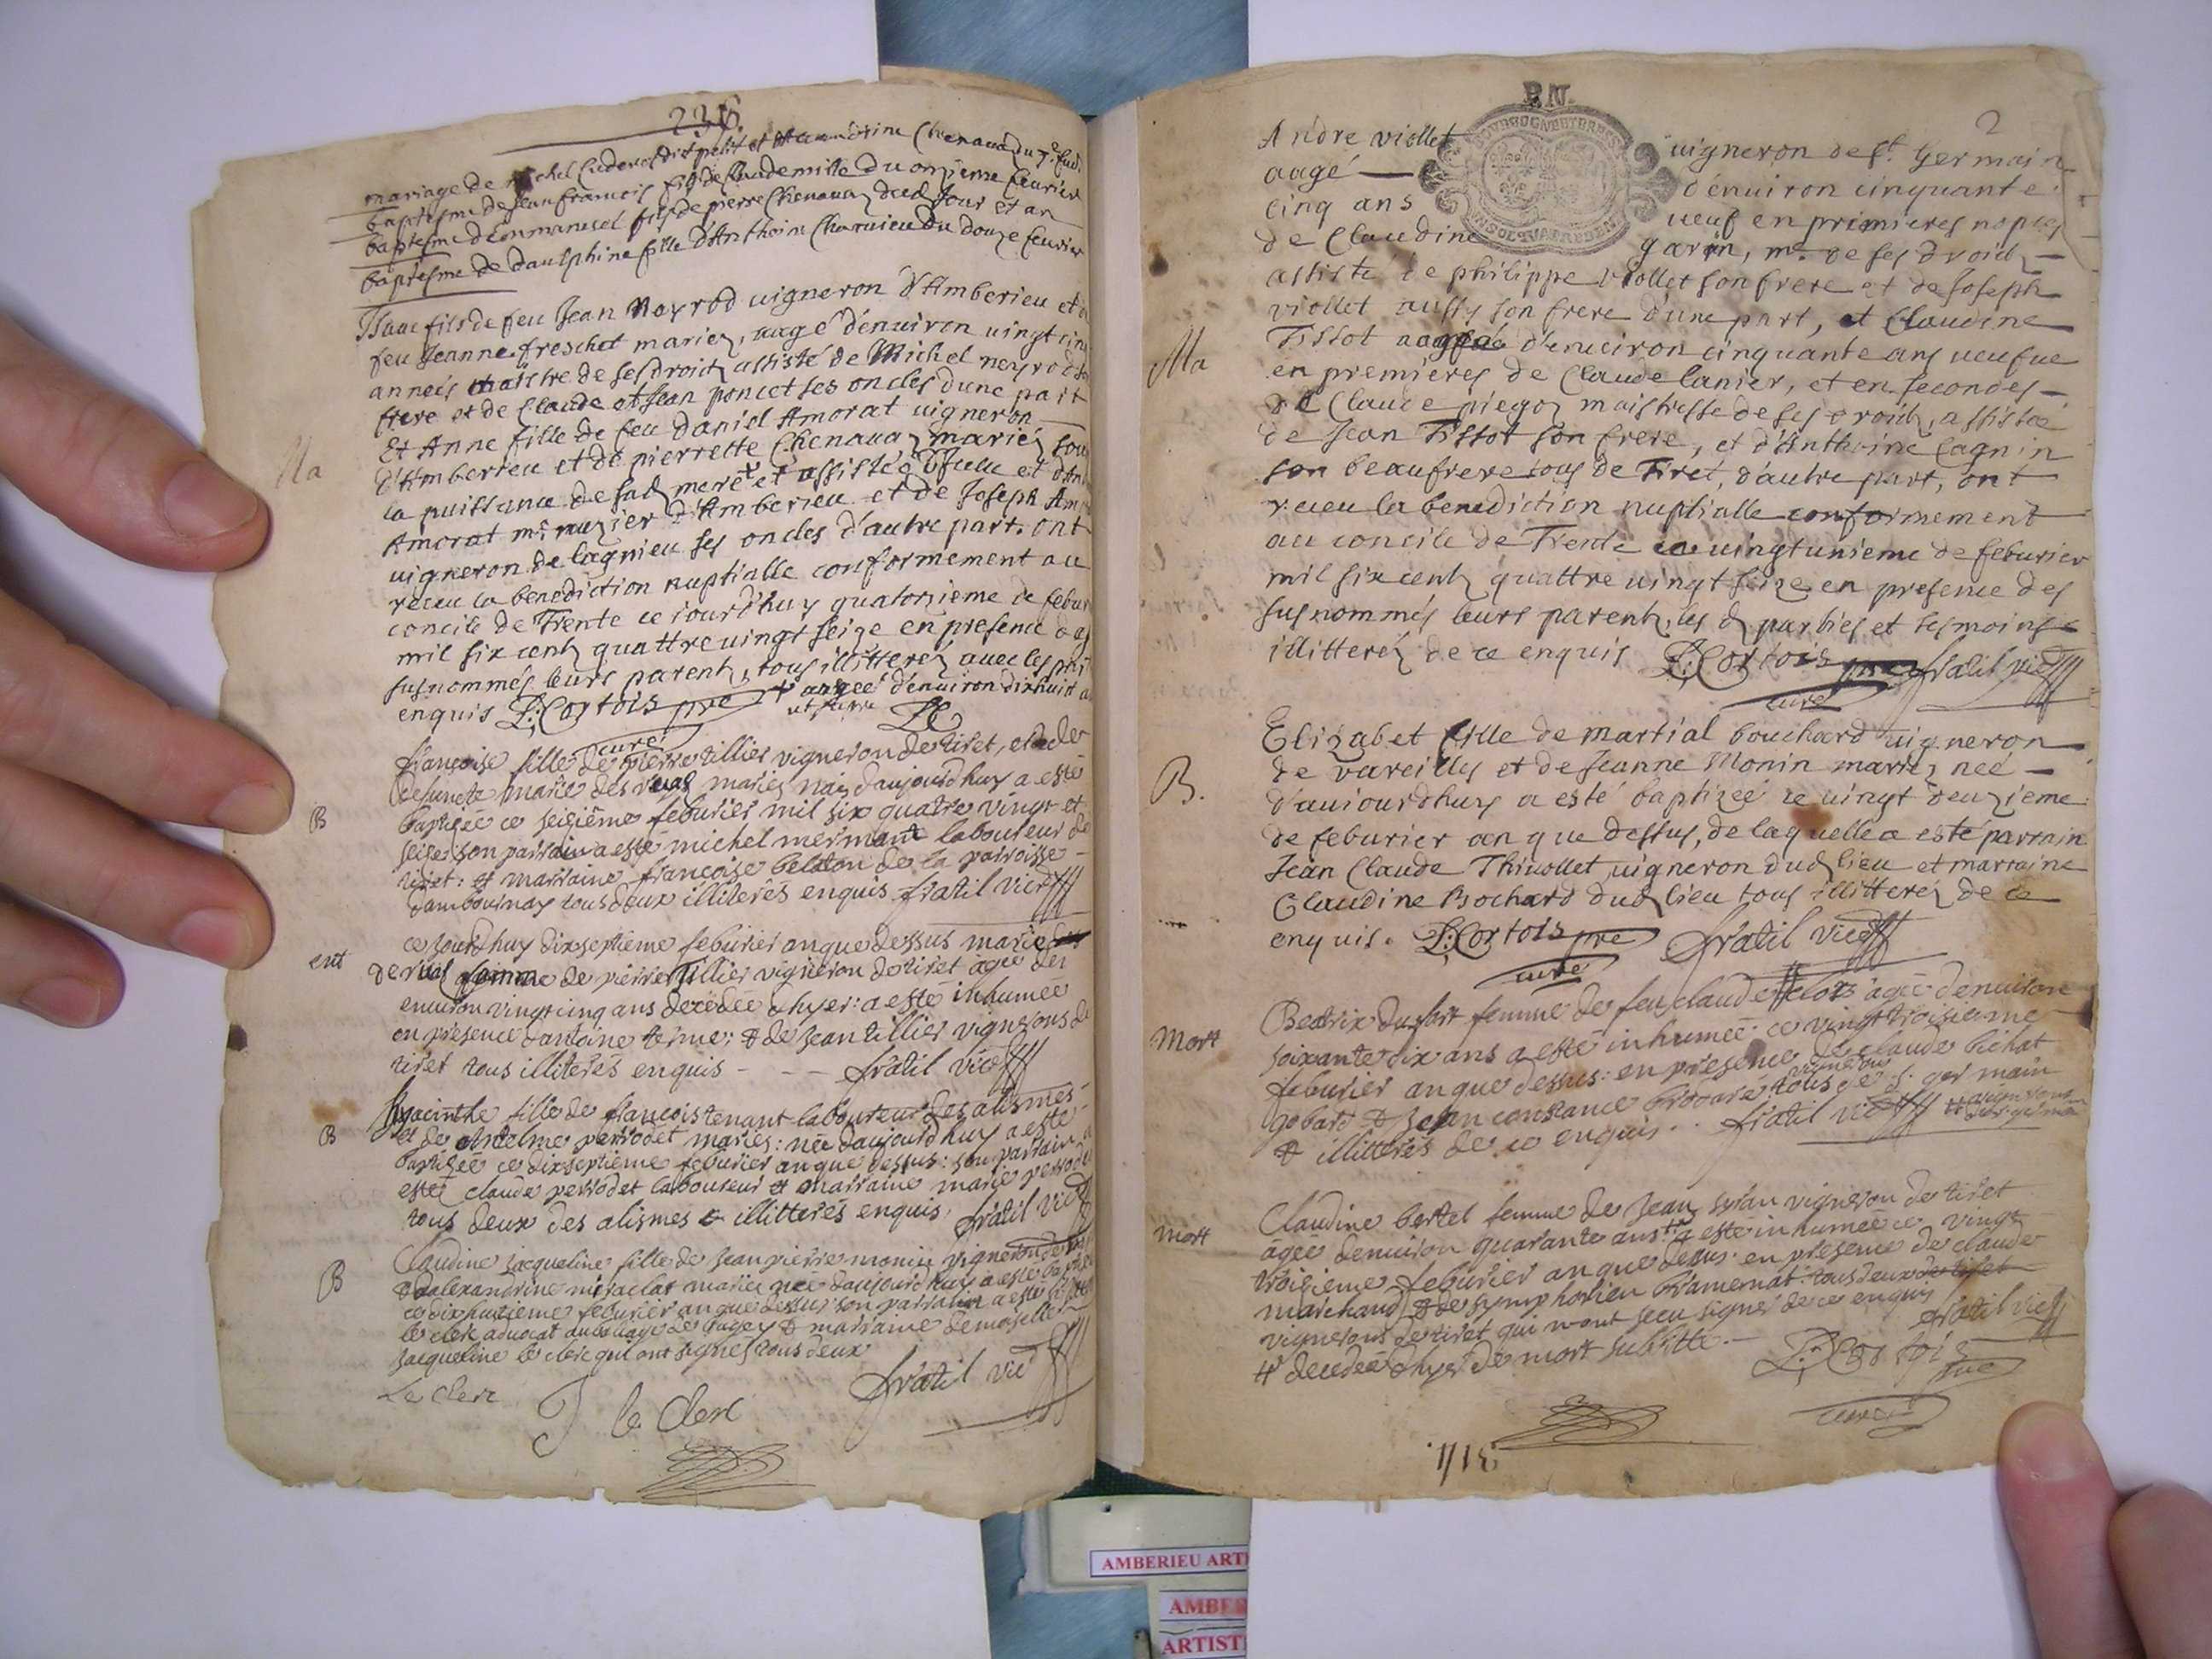 236.
mariage de michel Cuderod dit petit et Chenava du 7e feu.
baptesme de Jean francois fils de Claude mille du onzieme feurier
baptesme d'Emmanuel fils de pierre Chenavaz dud Jour et an
baptesme de dausphine fille d'Anthoine Charvieu du douze feurier
Isaac fils de feu Jean Neyrod uigneron d'Amberieu et de
feu Jeanne freschet mariez, aagé d'enuiron uingt cinq
années maistre de ses droitz assisté de Michel neyrod son
frere et de Claude et Jean poncet ses oncles dune part
Et Anne fille de feu Daniel Amorat uigneron
d'Amberieu et de pierrette Chenavaz mariéz sou
la puissance de sad mere + et assistée d' et d'An
Amorat mre d'Amberieu et de Joseph Am
uigneron de lagnieu ses oncles d'autre part. ont
receu la benediction nuptialle conformement au
concile de Trente ce iourd'huy quatorzieme de febur
mil six centz quattre uingt seize en presence des
susnommés leurs parentz, tous illitteréz auec les
enquis P: Cortois pre + aagée d'enuiron dixhuit a
curé ut supra PC
Ma
françoise fille de pierre tillier vigneron de tiret, et de
defuncte marie des mariés née daujourdhuy a esté
B baptisée ce seisième feburier mil six quatre vingt et
seise son parrain a esté michel mermant laboureur de
tiret: et marraine françoise belaton de la parroisse
dambournay tous deux illiterés enquis fratil vic
ce jourdhuy dixseptieme feburier an que dessus marie
ent de rual femme de pierre Tillier vigneron de tiret agée de
enuiron vingt cinq ans decedée dhyer: a esté inhumée
en presence dantoine terme: et de Jean tillier vignerons de
tiret tous illiterés enquis - - - fratil vic
hyacinthe fille de francois tenant laboureur des alismes
B et de antelme perrodet mariés: née daujourdhuy a esté
baptisée ce dixseptieme feburier an que dessus: son parrain a
esté claude perrodet laboureur et marraine marie perrodet
tous deux des alismes et illitterés enquis. fratil vic
Claudine jacqueline fille de Jean pierre monin vigneron de
B et dalexandrine miraclat mariés née daujourdhuy a esté baptisée
ce dix huitieme feburier an que dessus son parrain a esté
le clerc aduocat au baliage de bugey et marraine demoiselle
jacqueline le clerc qui ont signés tous deux
Le clerc J le Clerc fratil vic
B N.
2
BOURGOGNE ET BRESSE
Andre viollet uigneron de st. Germain
aagé d'enuiron cinquante
cinq ans ueuf en premieres nopces
de Claudine garin, me. de ses droitz
assisté de philippe viollet son frere et de Joseph
viollet aussy son frere d'une part, et Claudine
Ma Tissot aagée d'enuiron cinquante ans ueufue
en premieres de Claude lanier, et en secondes
de Claude piegoz maistresse de ses droitz, assistée
de Jean Tissot son frere, et d'Anthoine Cagnin
son beaufrere tous de Tiret, d'autre part, ont
receu la benediction nuptialle conformement
au concile de Trente ce uingtunieme de feburier
mil six centz quattre uingt seize en presence des
susnommés leurs parentz, les d parties et tesmoins
illitteréz de ce enquis P: Cortois pre fratil vic
curé
Elizabet fille de martial bouchard uigneron
B. de vareilles et de Jeanne Monin mariéz née
d'auiourdhuy a esté baptizée ce uingt deuzieme
de feburier an que dessus, de laquelle a esté parrain
Jean Claude Thiuollet uigneron dud lieu et marraine
Claudine Bochard dud lieu tous illitteréz de ce
enquis. P: Cortois pre fratil vic
curé
Beatrix femme de feu claude agée denuiron
Mort soixante dix ans a esté inhumée ce vingt troisieme
feburier an que dessus: en presence de claude bichat
vigneron
gobard et Jean constance tous de s. germain
et illitterés de ce enquis. . fratil vic
Claudine bertet femme de Jean vigneron de tiret
mort agée denuiron quarante ans # a esté inhumée ce vingt
troisieme feburier an que dessus. en presence de claude
marchand et de symphorien bramernat. tous deux de tiret
vignerons de tiret qui n'ont sceu signer de ce enquis fratil vic
# decedée dhyer de mort subitte. P: Cortois pre
curé